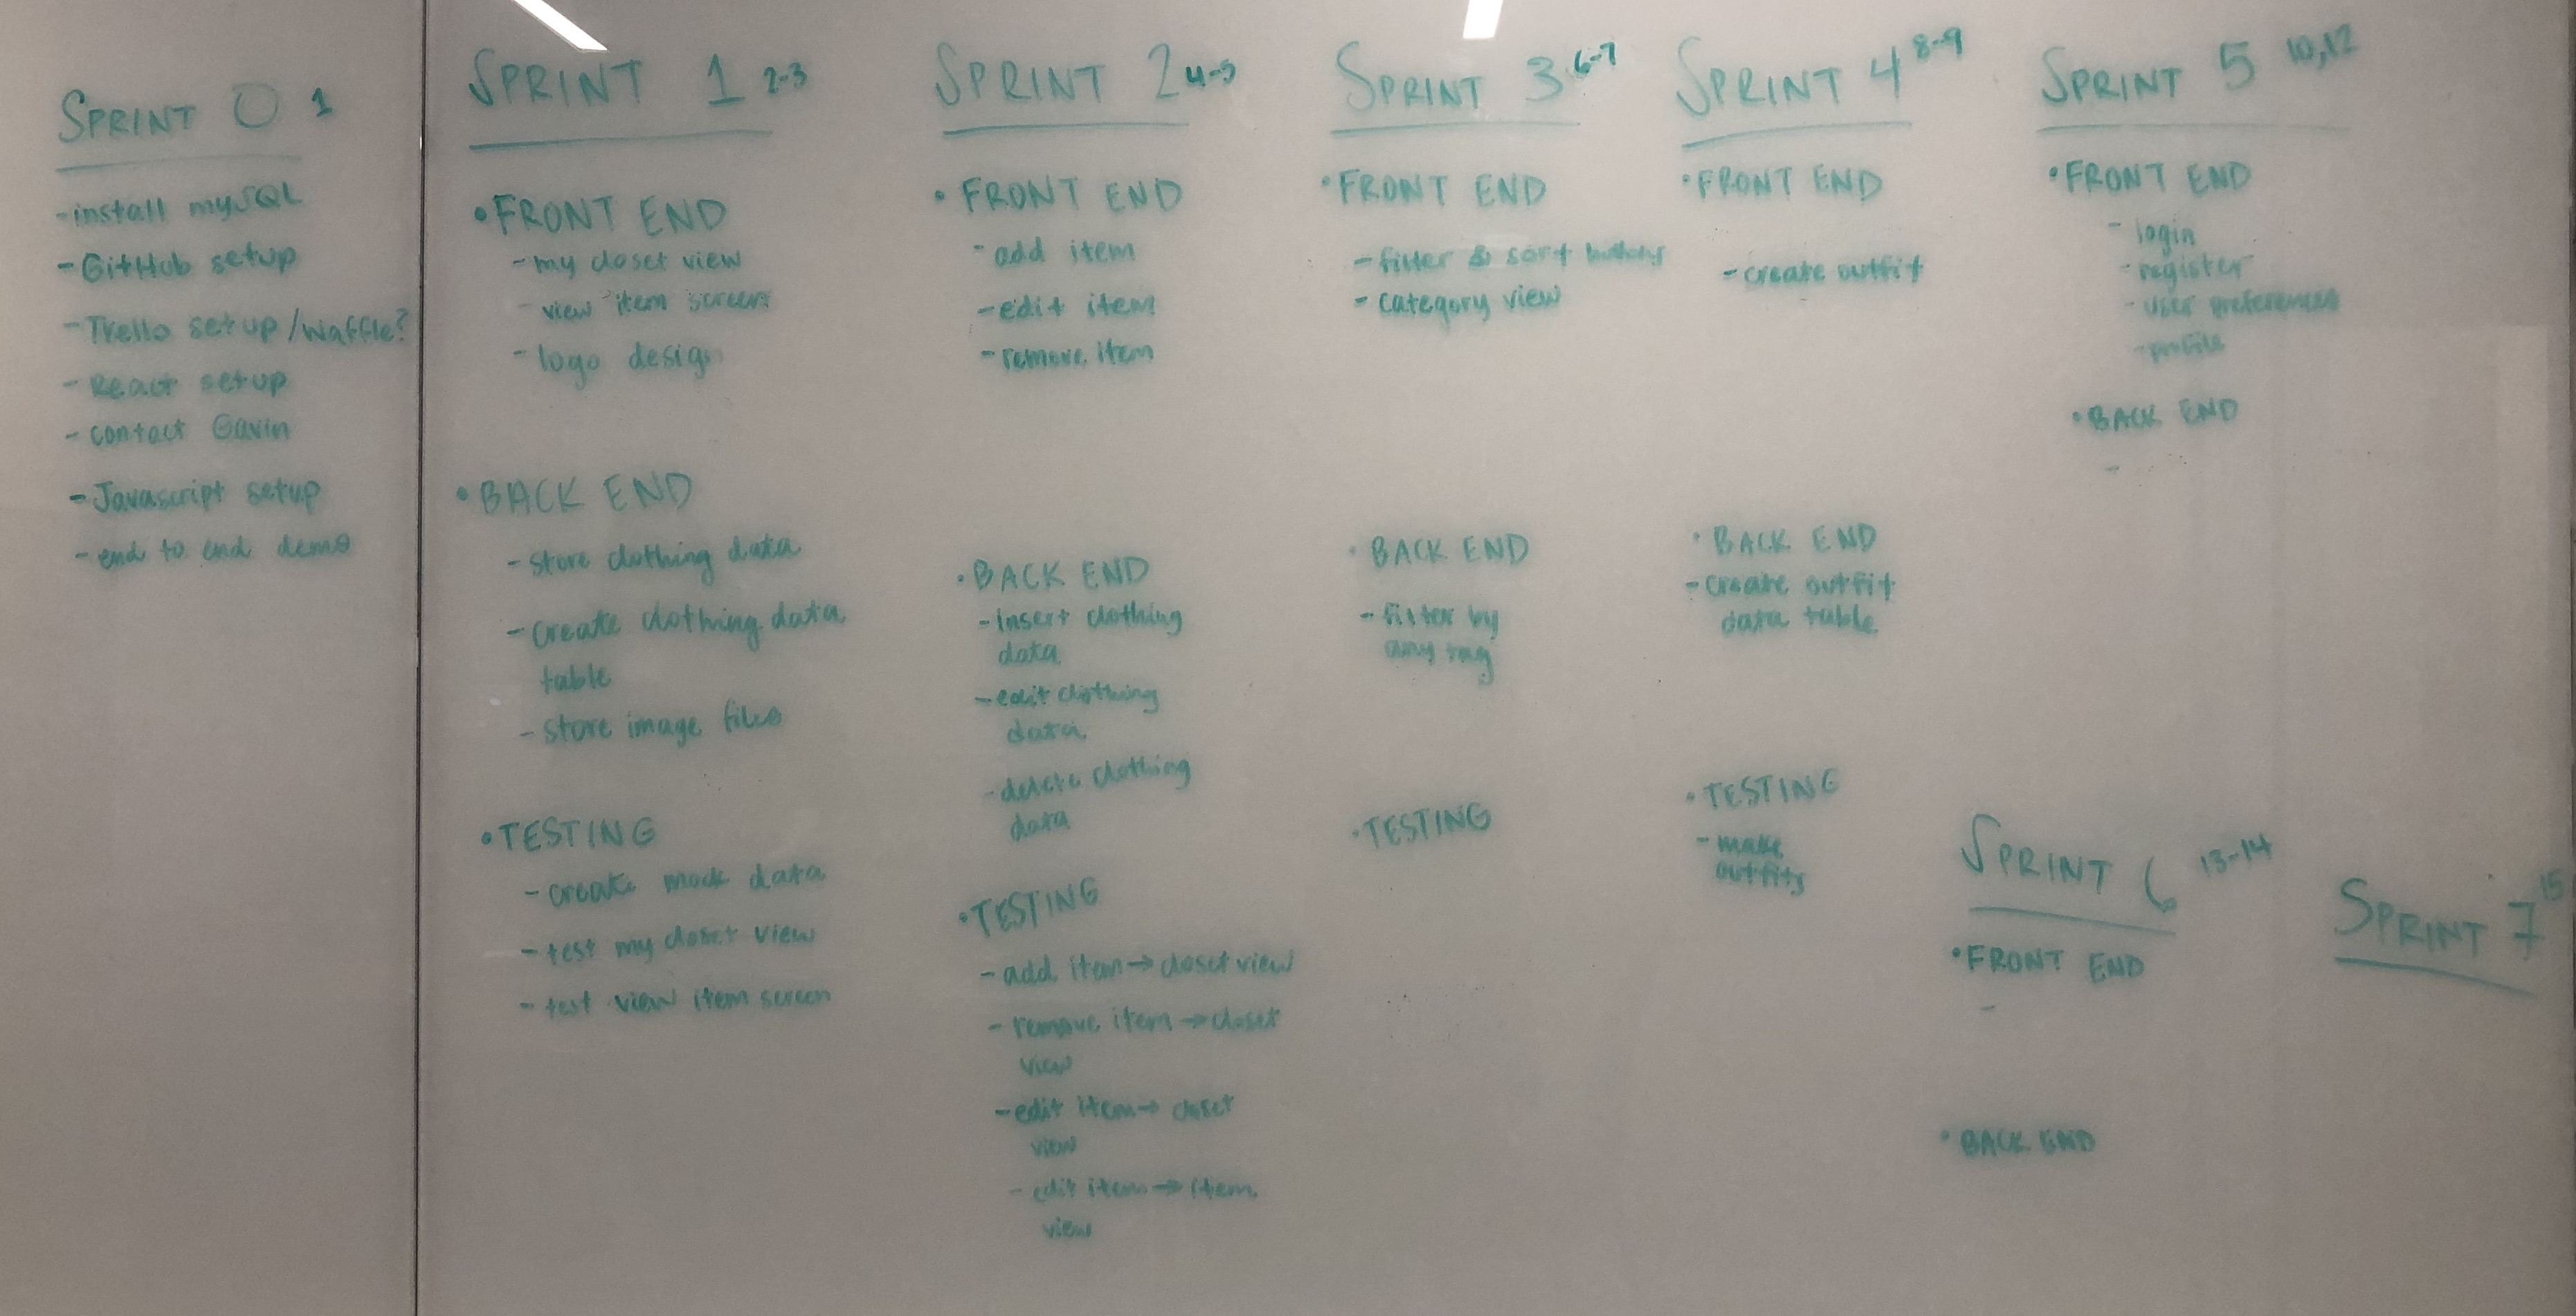 SPRINT 0 1
-install mySQL
-GitHub setup
-Trello setup/Waffle?
-React setup
-contact Gavin
-Javascript setup
-end to end demo
SPRINT 1 2-3
•FRONT END
-my closet view
-view item screen
-logo design
•BACK END
-store clothing data
-create clothing data
table
-store image files
•TESTING
-create mock data
-test my closet view
-test view item screen
SPRINT 2 4-5
•FRONT END
-add item
-edit item
-remove item
•BACK END
-insert clothing
data
-edit clothing
data
-delete clothing
data
•TESTING
-add item→closet view
-remove item→closet
view
-edit item→closet
view
-edit item→item
view
SPRINT 3 6-7
•FRONT END
-filter & sort buttons
-category view
•BACK END
-filter by
any tag
•TESTING
SPRINT 4 8-9
•FRONT END
-create outfit
•BACK END
-create outfit
data table
•TESTING
-make
outfits
SPRINT 5 10,12
•FRONT END
-login
-register
-user preferences
-profile
•BACK END
-
SPRINT 6 13-14
•FRONT END
-
•BACK END
SPRINT 7 15